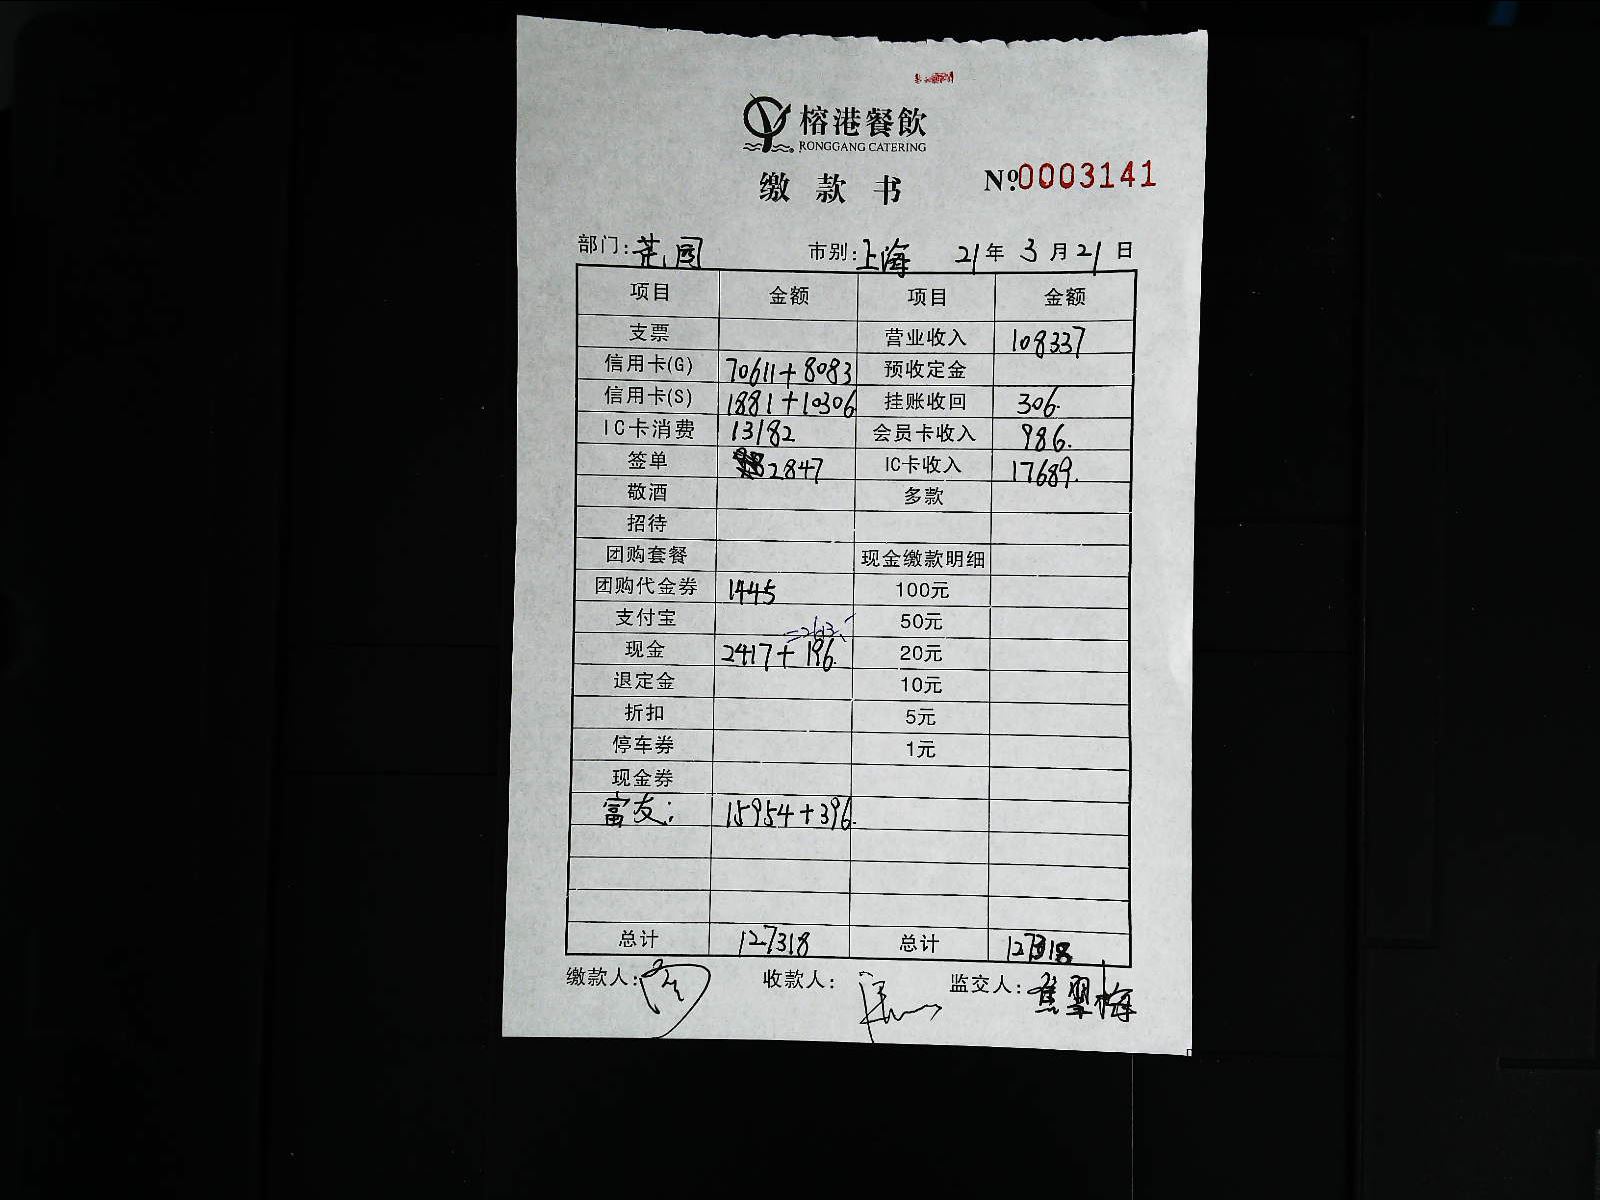 榕港餐飲
RONGGANG CATERING
缴款书
№0003141
部门: 市别:上海 21年3月21日
项目 金额 项目 金额
支票 营业收入 108337
信用卡(G) 70611+8083 预收定金
信用卡(S) 1881+10306 挂账收回 306.
IC卡消费 13182 会员卡收入 986.
签单 2847 IC卡收入 17689.
敬酒 多款
招待
团购套餐 现金缴款明细
团购代金券 1445 100元
支付宝 50元
=2613.
现金 2417+196. 20元
退定金 10元
折扣 5元
停车券 1元
现金券
富友: 15954+396.
总计 127318 总计 127318
缴款人: 收款人: 监交人:焦翠梅